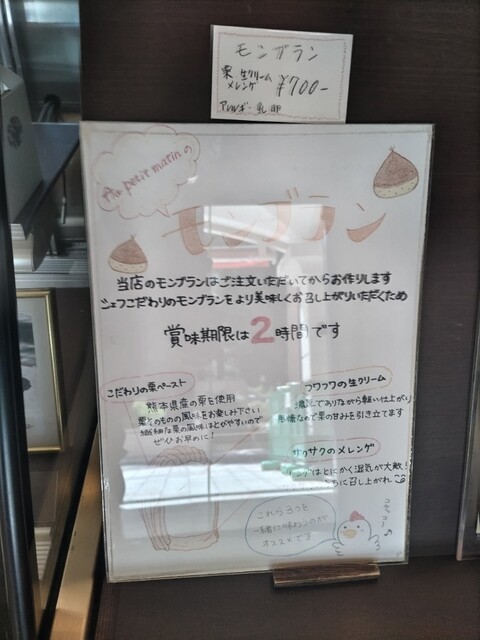 モンブラン
栗 生クリーム
メレンゲ ¥700-
アレルギー 乳 卵
Au petit matin の
モンブラン
当店のモンブランはご注文いただいてからお作りします
シェフこだわりのモンブランをより美味しくお召し上がりいただくため
賞味期限は2時間です
こだわりの栗ペースト
熊本県産の栗を使用
栗そのものの風味をお楽しみ下さい
繊細な栗の風味はとびやすいので
ぜひお早めに!
フワフワの生クリーム
濃厚でありながら軽い仕上がり
無糖なので栗の甘みを引き立てます
サクサクのメレンゲ
メレンゲはとにかく湿気が大敵!
に召し上がれ
これら3つを
一緒に味わうのが
オススメです
コケコッコー♪